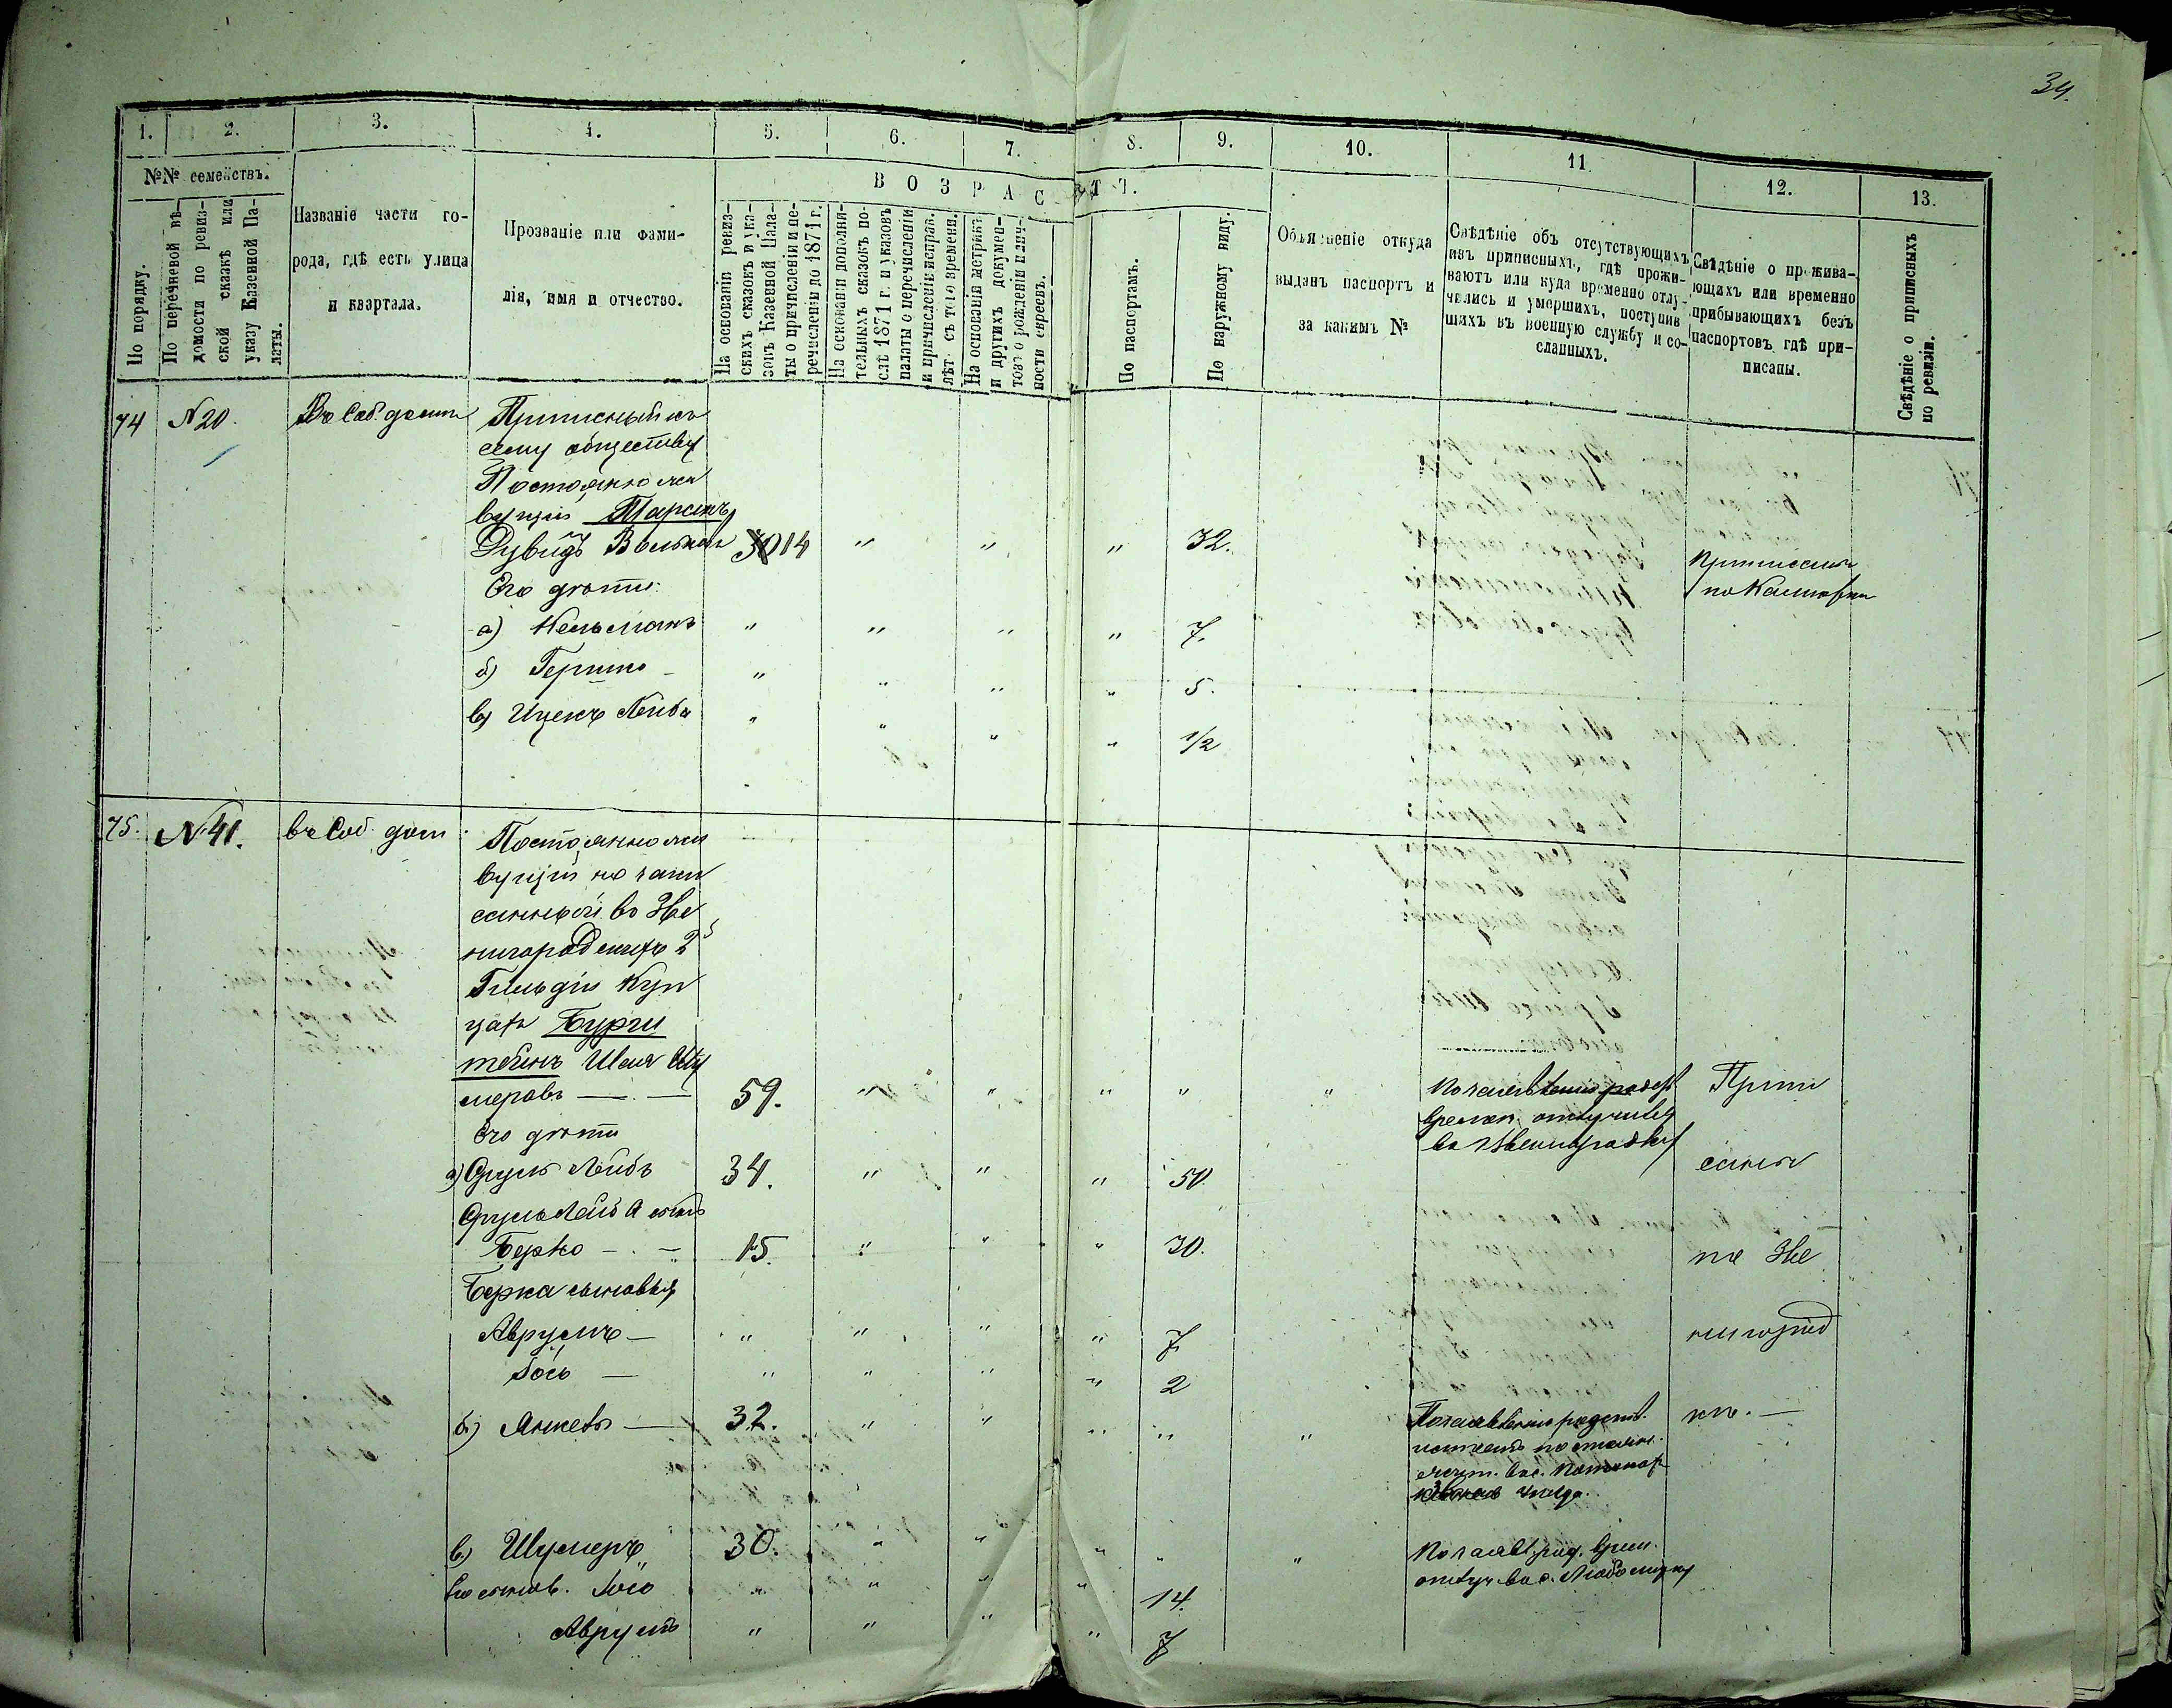 34.
1. 2. 3. 4. 5. 6. 7. 8. 9. 10. 11 12. 13.
№№ семействъ.
По порядку.
По перечневой вѣ-
домости по ревиз-
ской сказкѣ или
указу Казенной Па-
латы.
Названіе части го-
рода, гдѣ есть улица
и квартала.
Прозваніе или фами-
лія, имя и отчество.
ВОЗРАСТЪ.
На основаніи ревиз-
скихъ сказокъ и ука-
зовъ Казенной Пала-
ты о причисленіи и пе-
речисленіи до 1871 г.
На основаніи дополни-
тельныхъ сказокъ по-
слѣ 1871 г. и указовъ
палаты о перечисленіи
и причисленіи исправ.
лѣт. съ того времени.
На основаніи метрикъ
и другихъ докумен-
товъ о рожденіи и лич-
ности евреевъ.
По паспортамъ.
По наружному виду.
Объясненіе откуда
выданъ паспортъ и
за какимъ №
Свѣдѣніе объ отсутствующихъ
изъ приписныхъ, гдѣ прожи-
ваютъ или куда временно отлу-
чились и умершихъ, поступив
шихъ въ военную службу и со-
сланныхъ.
Свѣдѣніе о прожива-
ющихъ или временно
прибывающихъ безъ
паспортовъ гдѣ при-
писаны.
Свѣдѣніе о приписныхъ
по ревизіи.
74 №20. Въ Соб. домѣ Приписный къ
сему обществу
Постоянно жи
вущій
Дувидъ Вольковъ 14 " " " 32.
Приписанъ
по
Его дѣти:
а) Кельманъ " " " " 7.
б) Гершко " " " " 5.
в) Ицекъ Лейба " " " " 1/2
75. №41. въ Соб. дом Постоянно жи
вущій но запи
санный во Зве
нигородскихъ 2й
Гильдіи Куп
цахъ Бурш
тейнъ Шая Шу
меровъ 59. " " " " " По заявленію
времен. отлучился
въ Звенигородку
Припи
Его дѣти
а) Сруль Лейбъ 34. " " " 50
саны
Сруля Лейба сынъ
Берко 15. " " " 30.
по Зве
Берка сыновья
Аврумъ " " " " 7
нигород
Іось " " " " 2
б) Янкель 32. " " " " "
кѣ.
в) Шумеръ 30. " " " " " По заявл. род. врем.
отлуч. въ с. Любомирку
Его сынов. Іось " " " " 14.
Аврумъ " " " " 7